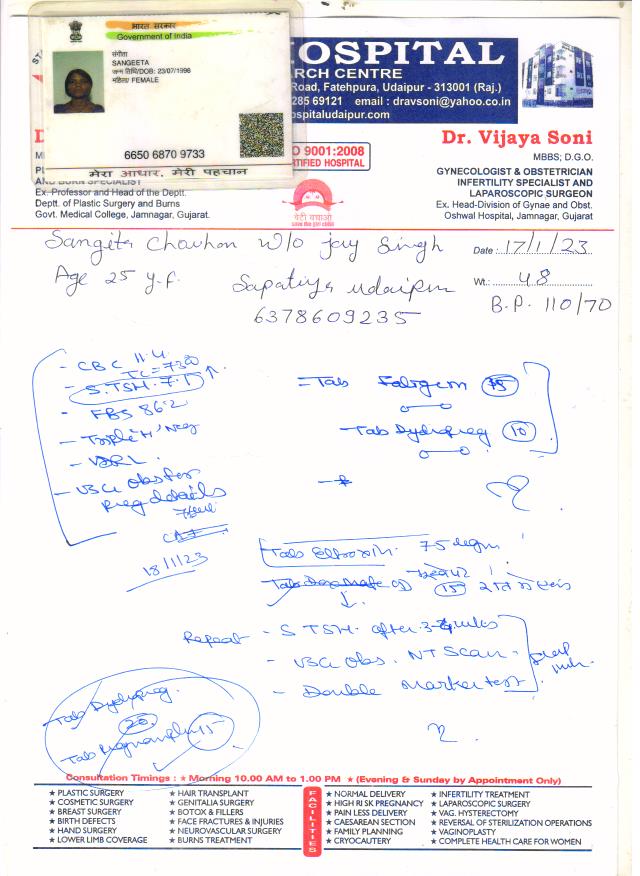 भारत सरकार
Government of India
संगीता
SANGEETA
जन्म तिथि/DOB: 23/07/1996
महिला/ FEMALE
6650 6870 9733
मेरा आधार, मेरी पहचान
HOSPITAL
ARCH CENTRE
Road, Fatehpura, Udaipur - 313001 (Raj.)
285 69121 email : dravsoni@yahoo.co.in
ospitaludaipur.com
O 9001:2008
TIFIED HOSPITAL
AND BURN SPECIALIST
Ex. Professor and Head of the Deptt.
Deptt. of Plastic Surgery and Burns
Govt. Medical College, Jamnagar, Gujarat.
बेटी बचाओ
Dr. Vijaya Soni
MBBS; D.G.O.
GYNECOLOGIST & OBSTETRICIAN
INFERTILITY SPECIALIST AND
LAPAROSCOPIC SURGEON
Ex. Head-Division of Gynae and Obst.
Oshwal Hospital, Jamnagar, Gujarat
Sangita Chauhan w/o jay Singh
Date : 17/1/23
Age 25 y.f.
udaipur
Wt.: 48
6378609235
B.P. 110/70
- CBC 11.4
TC = 7300
- S. TSH - 7.1 ↑
- FBS 86.2
- Triple H' Neg
- VDRL
- USG Obs for
Preg details
= Tab 15
Tab Dydropreg 10
18/1/23
Tab Eltroxin 75 mcg
15
Repeat - S TSH after 3-4
- USG Obs. NT Scan
- Double Marker test
Tab Dydropreg
20
Tab 15
Consultation Timings : ★ Morning 10.00 AM to 1.00 PM ★ (Evening & Sunday by Appointment Only)
★ PLASTIC SURGERY
★ COSMETIC SURGERY
★ BREAST SURGERY
★ BIRTH DEFECTS
★ HAND SURGERY
★ LOWER LIMB COVERAGE
★ HAIR TRANSPLANT
★ GENITALIA SURGERY
★ BOTOX & FILLERS
★ FACE FRACTURES & INJURIES
★ NEUROVASCULAR SURGERY
★ BURNS TREATMENT
FACILITIES
★ NORMAL DELIVERY
★ HIGH RISK PREGNANCY
★ PAIN LESS DELIVERY
★ CAESAREAN SECTION
★ FAMILY PLANNING
★ CRYOCAUTERY
★ INFERTILITY TREATMENT
★ LAPAROSCOPIC SURGERY
★ VAG. HYSTERECTOMY
★ REVERSAL OF STERILIZATION OPERATIONS
★ VAGINOPLASTY
★ COMPLETE HEALTH CARE FOR WOMEN